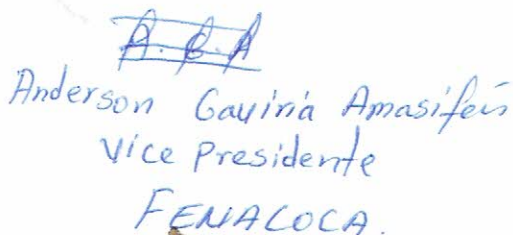 A. G. A
Anderson Gaviria Amasifén
Vice Presidente
FENACOCA.